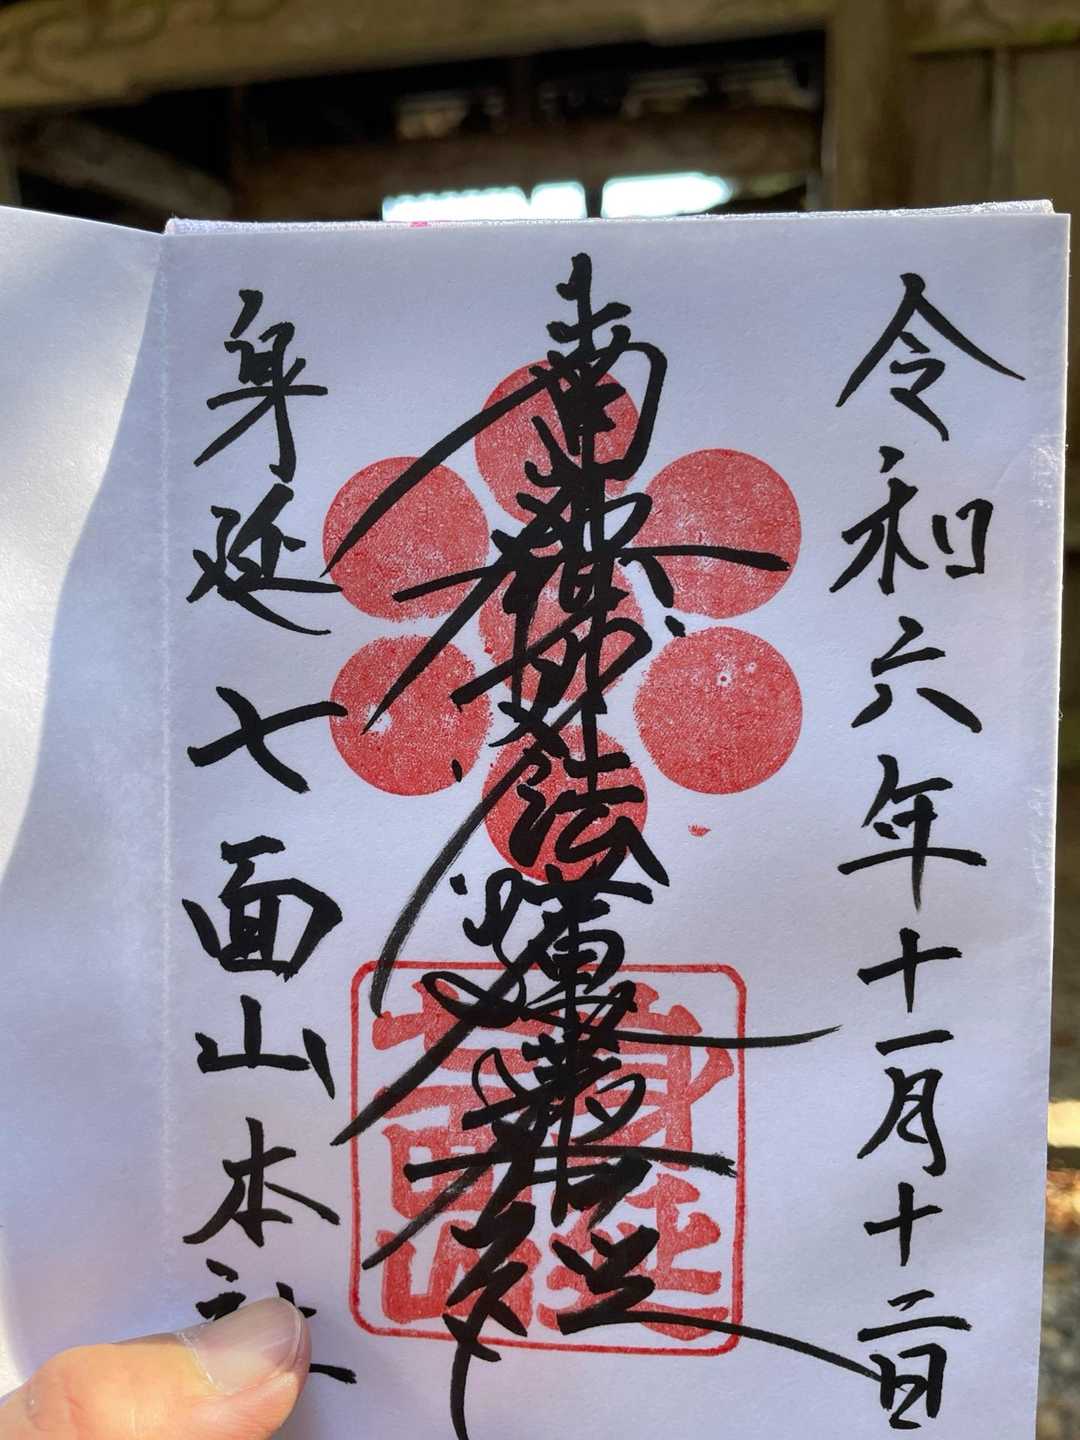 令和六年十一月十二日
南無妙法蓮華経
身延七面山本社
身延
七面山